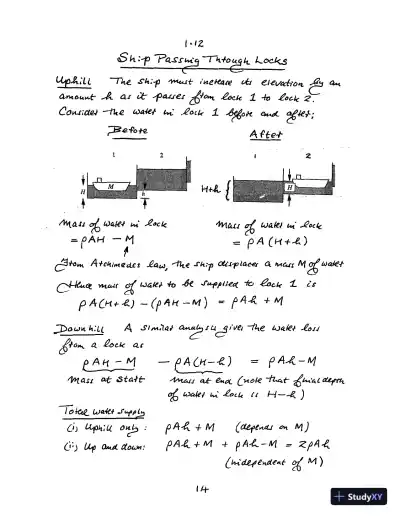 1.12
Ship Passing Through Locks
Uphill The ship must increase its elevation by an
amount h as it passes from lock 1 to lock 2.
Consider the water in lock 1 before and after;
Before After
1 2 1 2
H M h H+h H
Mass of water in lock Mass of water in lock
= ρAH − M = ρA(H+h)
From Archimedes law, the ship displaces a mass M of water
Hence mass of water to be supplied to lock 1 is
ρA(H+h) − (ρAH − M) = ρAh + M
Downhill A similar analysis gives the water loss
from a lock as
ρAH − M − ρA(H−h) = ρAh − M
mass at start mass at end (note that final depth
of water in lock is H−h)
Total water supply
(i) Uphill only: ρAh + M (depends on M)
(ii) Up and down: ρAh + M + ρAh − M = 2ρAh
(independent of M)
14
StudyXY